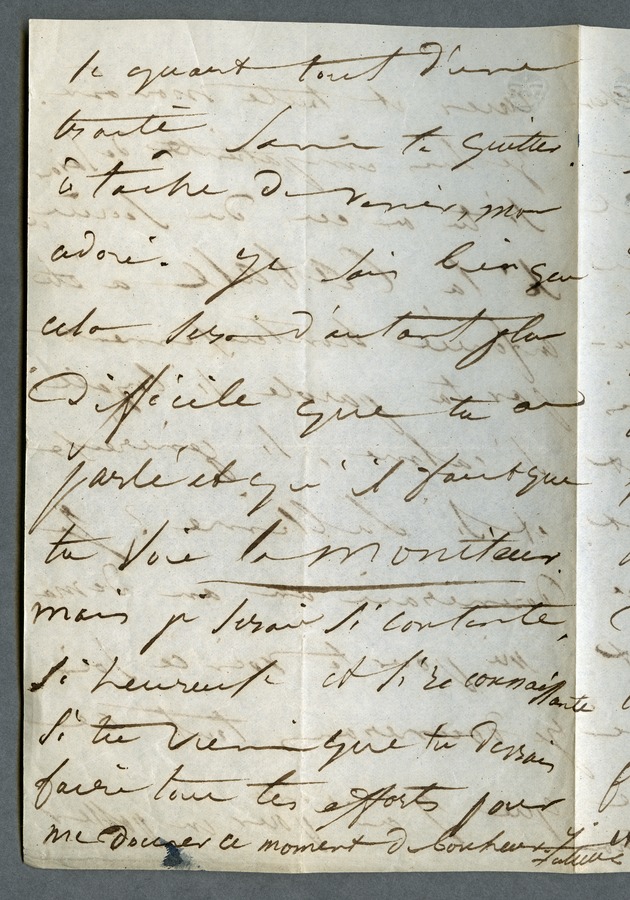 le quart tout d'une
traite sans te quitter.
tâche de venir, mon
adoré. Je sais bien que
cela sera d'autant plus
difficile que tu as
parlé et qu'il faut que
tu voie le Moniteur.
mais je serais si contente,
si heureuse et si reconnaissante
si tu venais que tu devrais
faire tous tes efforts pour
me donner ce moment de bonheur.